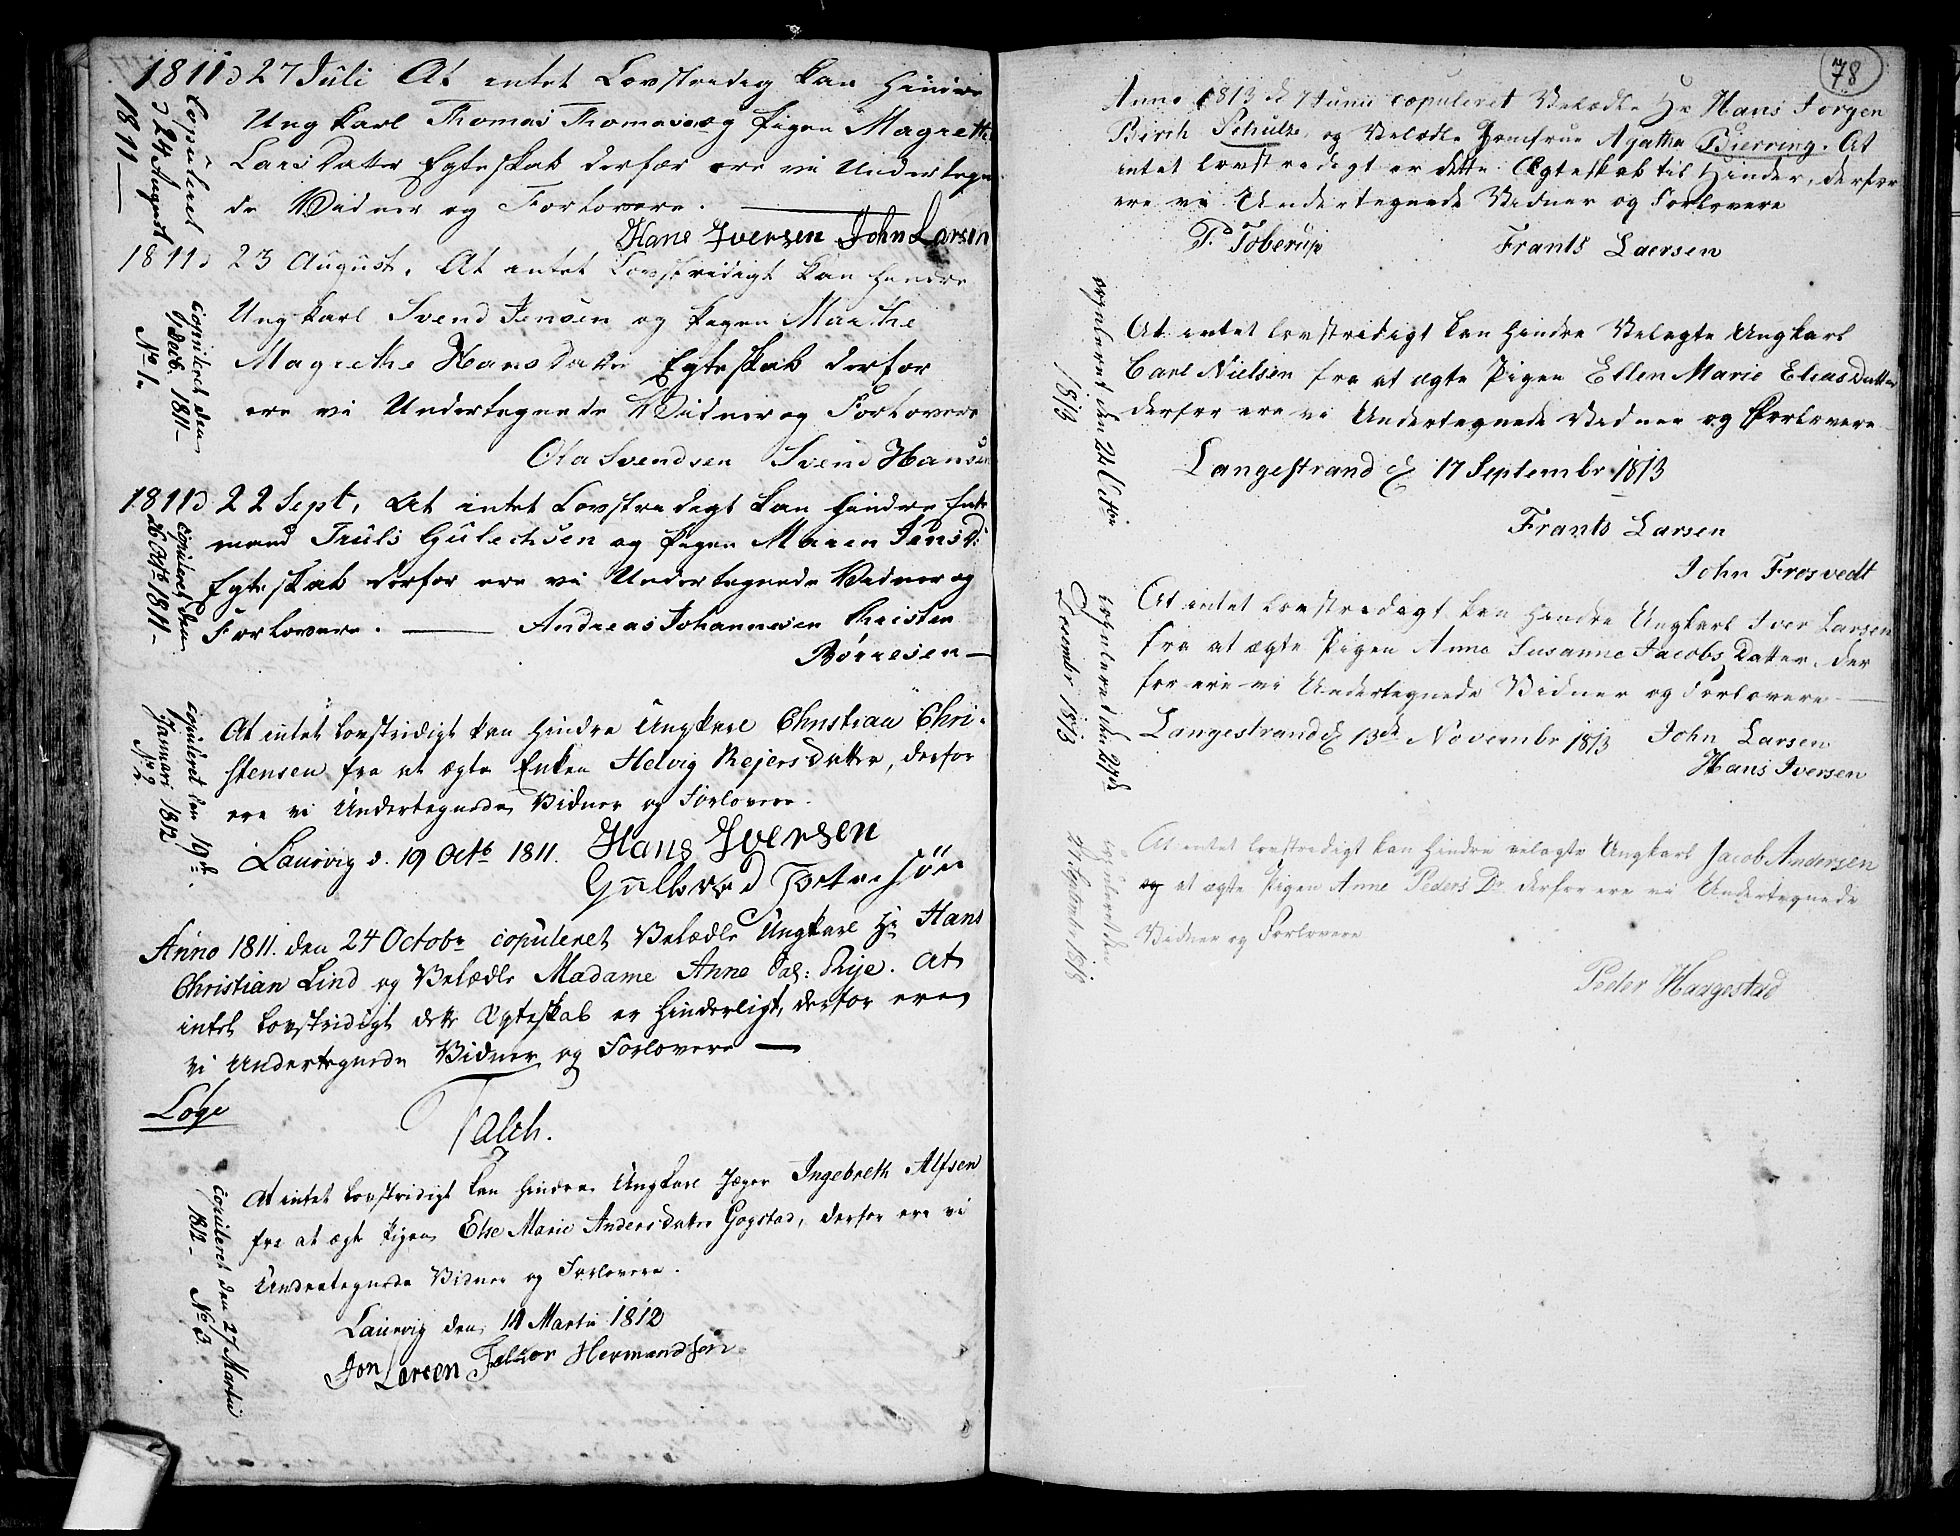 1811 d 27 Juli At intet Lovstredig kan Hindre
Ung karl Thomas Thomasen og Pigen Magrethe
Lars Datter Egteskab derfor ere vi Undertegne
de Vidner og Forlovere.
Hans Iversen John Larsen
Copuleret
d 24 August
1811
1811 d 23 August. At intet Lovstridigt kan Hindre
Ung karl Svend Jensen og Pigen Marthe
Magrethe Hans Datter Egteskab derfor
ere vi Undertegnede Vidner og Forlovere
Ola Svendsen Svend Hansen
Copuleret den
9 Decb. 1811
No 1.
1811 d 22 Sept. At intet Lovstredigt kan Hindre Enke
mand Truls Gulechsen og Pigen Maren Jans D:
Egteskab derfor ere vi Undertegnede Vidner og
Forlovere. Andreas Johannesen Christen
Börresen
copuleret den
1811
At intet lovstridigt kan Hindre Ungkarl Christian Chri-
stensen fra at ægte Enken Helvig Rejers Datter, derfor
ere vi Undertegnede Vidner og Forlovere.
Laurvig d. 19 Octb 1811. Hans Iversen
Gulbrand
copuleret den 19de
Januari 1812
No 2
Anno 1811. den 24 Octobr copuleret Velædle Ungkarl Hr Hans
Christian Lind og Velædle Madame Anne Sal: Rije. At
intet lovstridigt dette Ægteskab er Hinderligt, derfor ere
vi Undertegnede Vidner og Forlovere
Loge
Falch.
At intet lovstridigt kan Hindre Ungkarl Jæger Ingebreth Alfsen
fra at ægte Pigen Else Marie Anders Datter Gogstad, derfor ere vi
Undertegnede Vidner og Forlovere.
Laurvig den 14 Martii 1812
Jon Larsen Halvor Hermandsen
copuleret den 27 Martii
1812 - No 3
78
Anno 1813 d 7 Junii copuleret Velædle Hr Hans Jorgen
Birch Schultz, og Velædle Jomfrue Agatha Bierring. At
intet lovstredigt er dette Ægteskab til Hinder, derfor
ere vi Undertegnede Vidner og Forlovere
P. Toberup Frants Laersen
At intet lovstredigt kan hindre Velagte Ungkarl
Carl Nielsen fra at ægte Pigen Ellen Marie Elias Datter
derfor ere vi Undertegnede Vidner og Forlovere
Langestrand d 17 Septembr 1813
Frants Larsen
John Frosvedt
copuleret den 24 Octbr
1813
At intet lovstredigt kan Hindre Ungkarl Iver Larsen
fra at ægte Pigen Anne Susanne Jacobs Datter, der
for ere vi Undertegnede Vidner og Forlovere
Langestrand d 13de Novembr 1813 John Larsen
Hans Iversen
copuleret den 27de
Decembr 1813
At intet lovstredigt kan Hindre velagte Ungkarl Jacob Andersen
og at ægte Pigen Anne Peders Dr. derfor ere vi Undertegnede
Vidner og Forlovere
Peder Haugestad
copuleret den